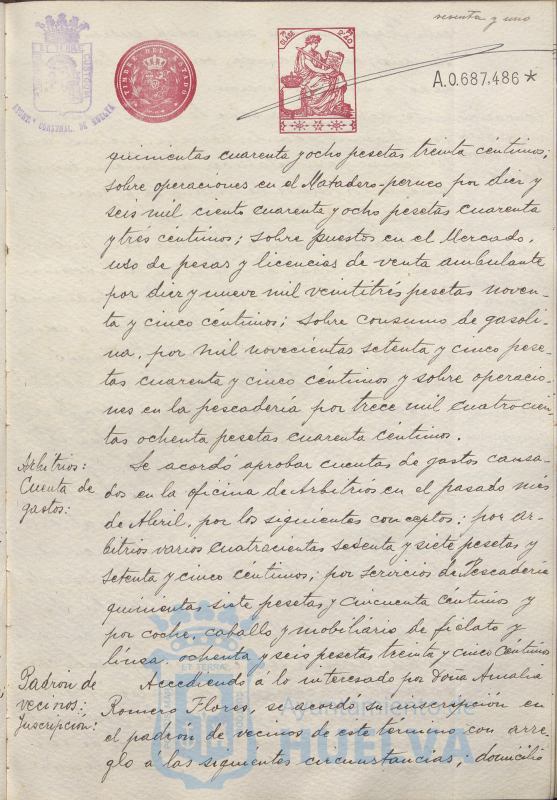 sesenta y uno
TIMBRE DEL ESTADO
CLASE
A.0.687.486*
quinientas cuarenta y ocho pesetas treinta céntimos;
sobre operaciones en el Matadero-perneo, por diez y
seis mil ciento cuarenta y ocho pesetas cuarenta
y trés céntimos; sobre puestos en el Mercado,
uso de pesas y licencias de venta ambulante
por diez y nueve mil veintitrés pesetas noven-
ta y cinco céntimos; sobre consumo de gasoli-
na, por mil novecientas setenta y cinco pese-
tas cuarenta y cinco céntimos y sobre operacio-
nes en la pescadería por trece mil cuatrocien-
tas ochenta pesetas cuarenta céntimos.
Arbitrios:
Cuenta de
gastos:
Se acordó aprobar cuentas de gastos causa-
dos en la oficina de Arbitrios en el pasado mes
de Abril, por los siguientes conceptos: por ar-
bitrios varios cuatrocientas sesenta y siete pesetas y
setenta y cinco céntimos; por servicios de Pescadería
quinientas siete pesetas y cincuenta céntimos y
por coche, caballo y mobiliario de fielato y
línea, ochenta y seis pesetas treinta y cinco céntimos
Padrón de
vecinos:
Inscripción:
Accediendo á lo interesado por Doña Amalia
Romero Flores, se acordó su inscripción en
el padrón de vecinos de este término con arre-
glo á las siguientes circunstancias, domicilio
Ayuntamiento de
HUELVA